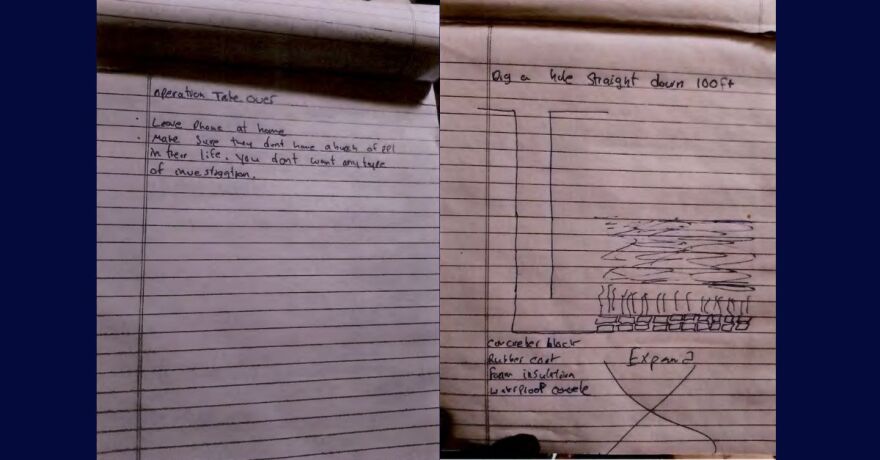 operation Take over
· Leave Phone at home
· Make Sure they dont have a bunch of PPl
in their life. You dont want any type
of investigation.
Dig a hole Straight down 100ft
concreter block
Rubber coat
Foam insulation
waterproof concrete
Expand